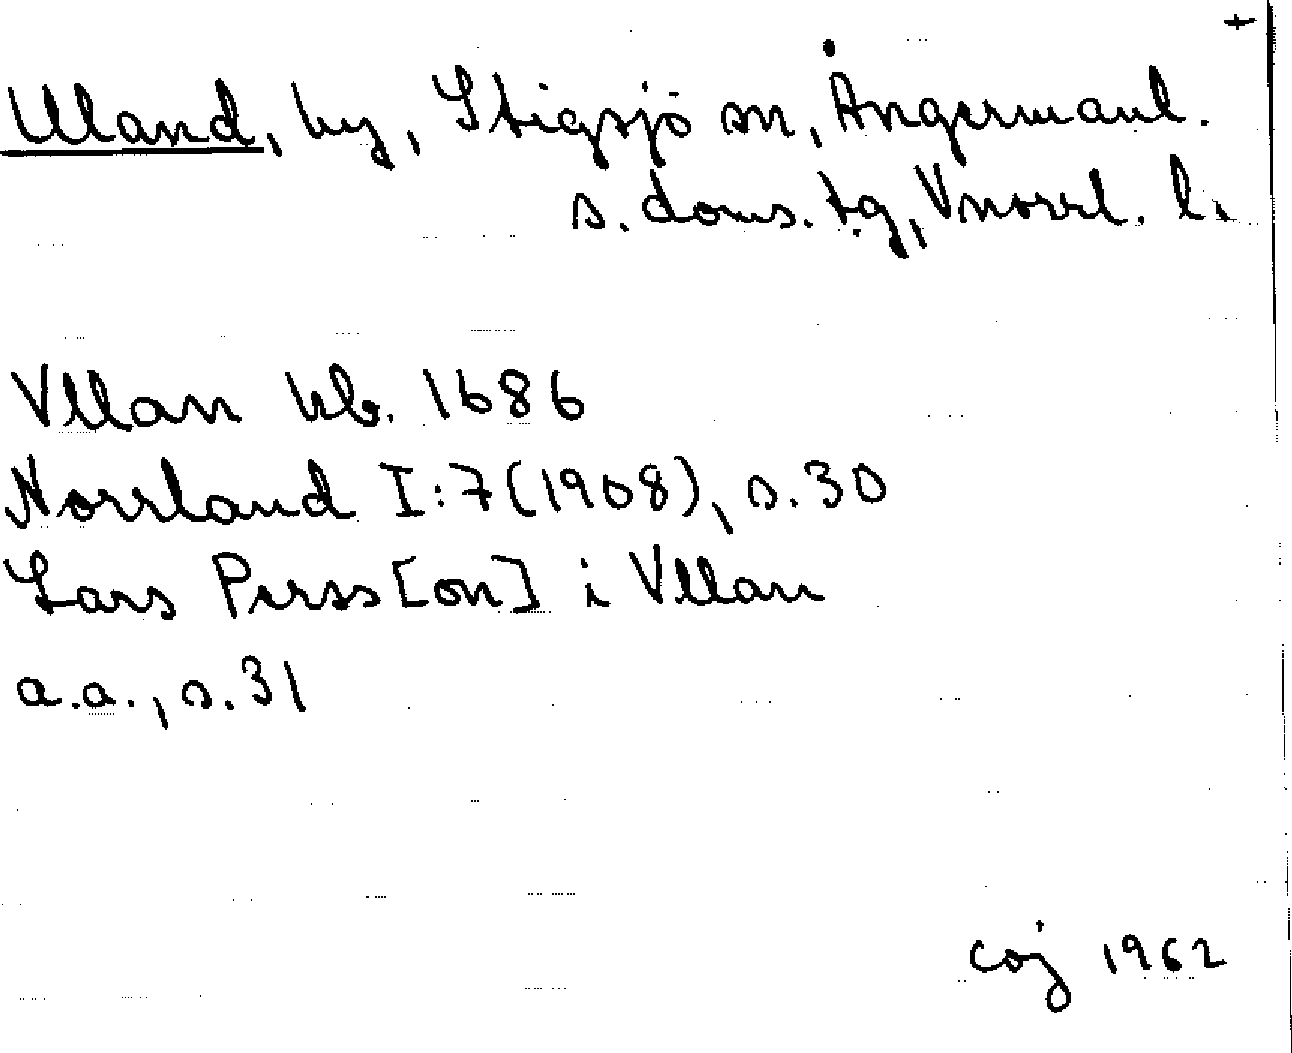 +
Uland, by, Stigsjö sn, Ångermanl.
s. doms. tg, Vnorrl. l.
Vllan kb. 1686
Norrland I:7(1908), s.30
Lars Perss[on] i Vllan
a.a., s.31
coj 1962